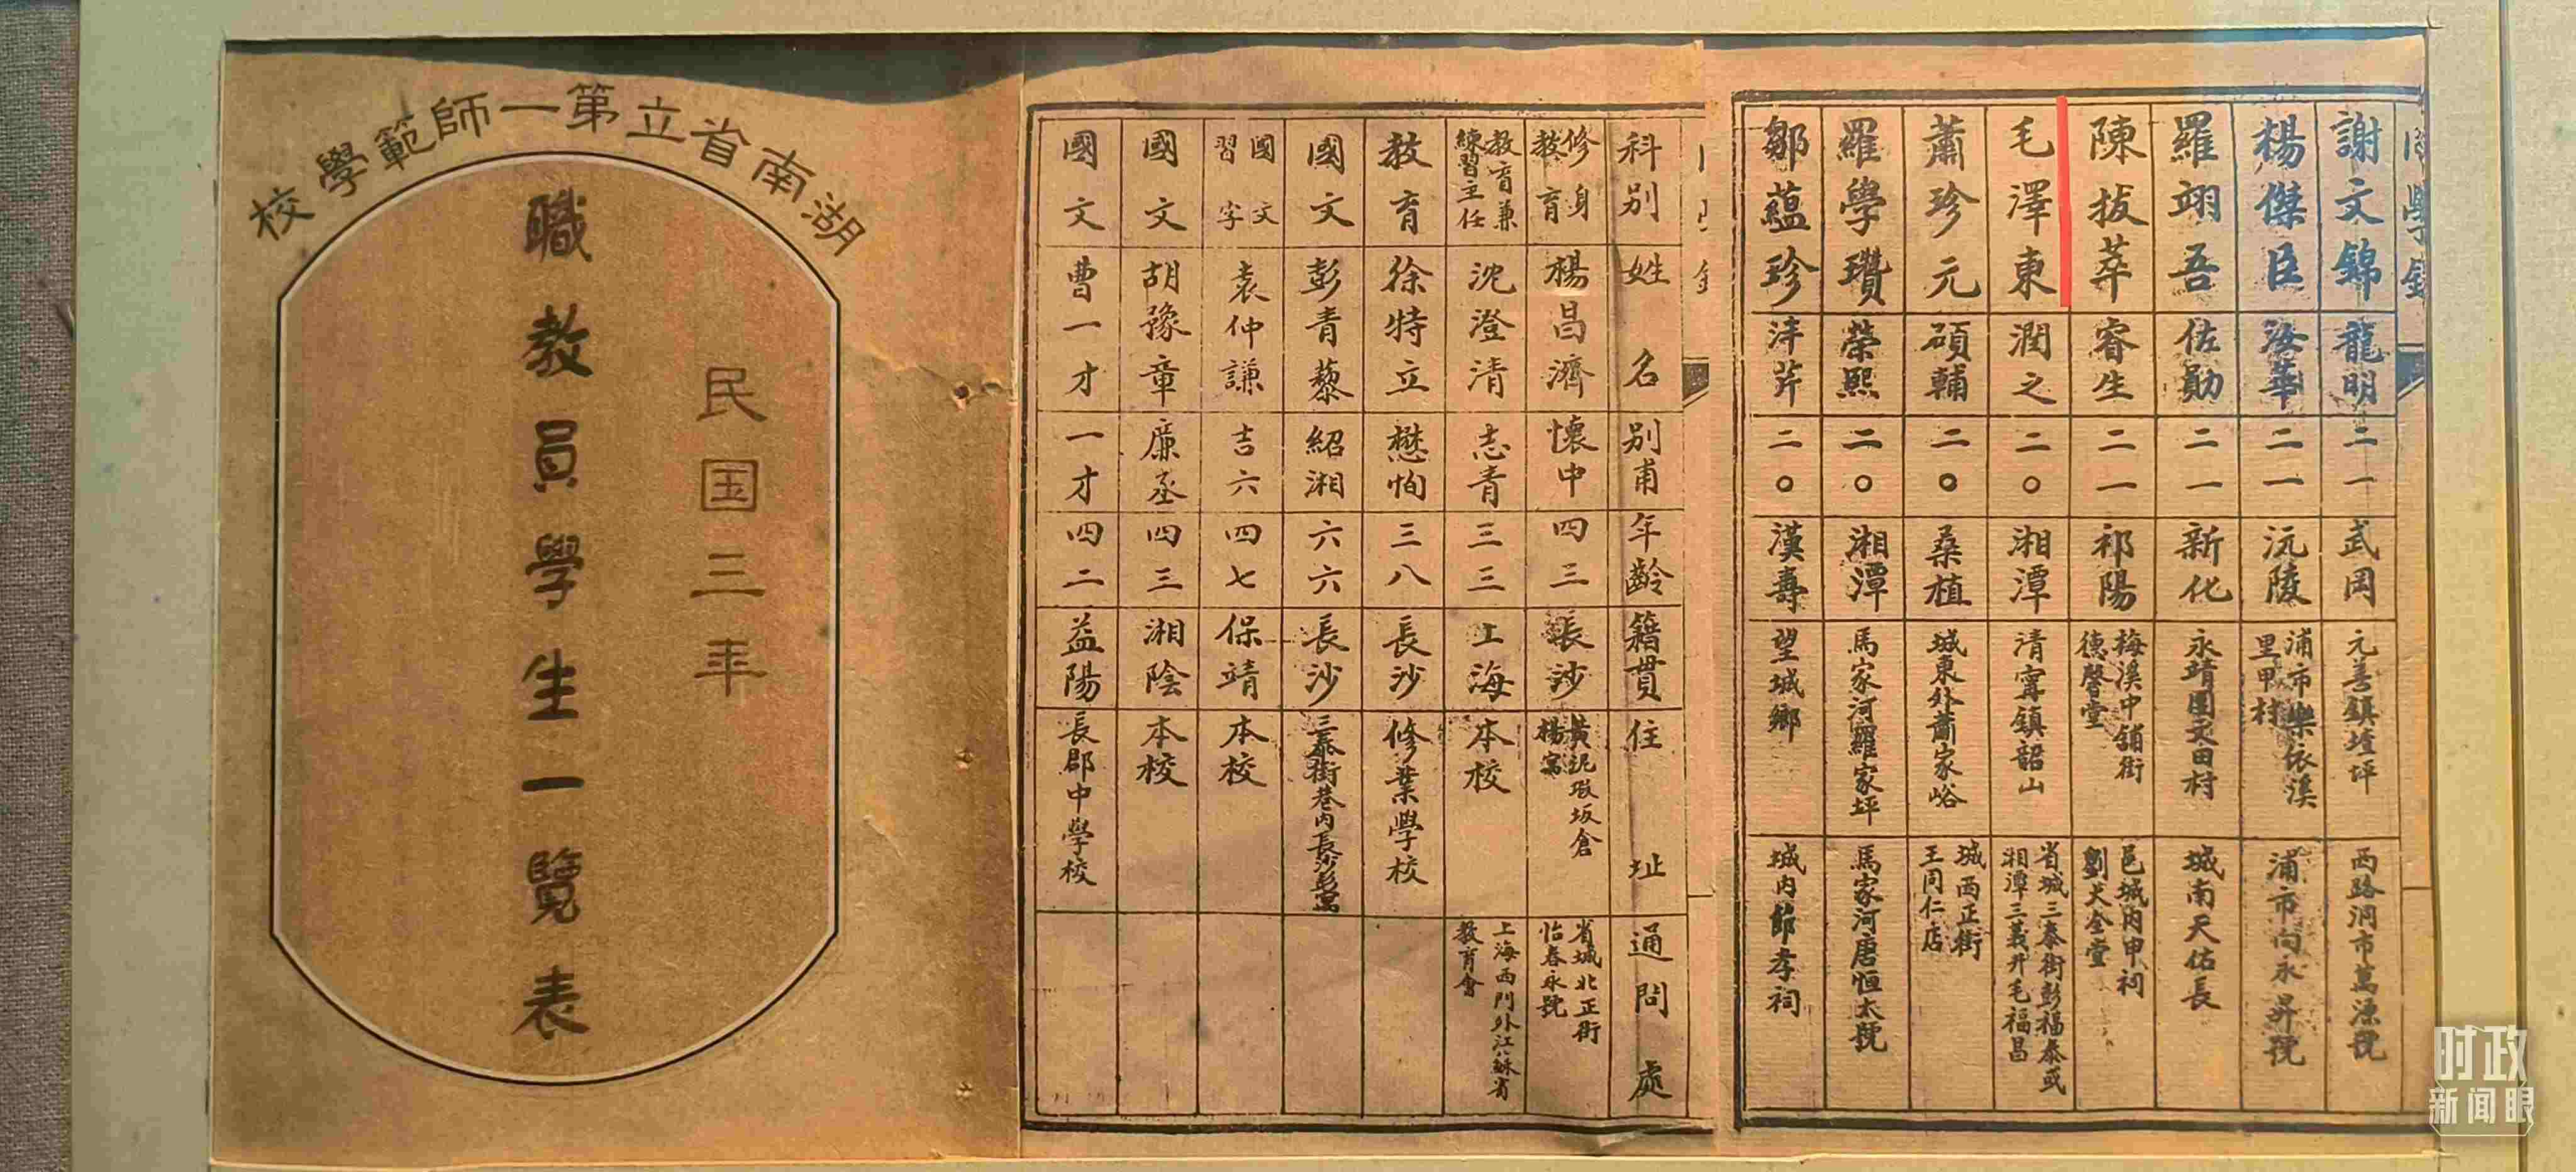 湖南省立第一師範學校
民国三年
職教員學生一覽表
科別 姓名 別甫 年齡 籍貫 住址 通問處
修身教育 楊昌濟 懷中 四三 長沙 楊寓 省城北正街怡春永號
教育兼練習主任 沈澄清 志青 三三 上海 本校 上海西門外江蘇省教育會
教育 徐特立 懋恂 三八 長沙 修業學校
國文 彭青藜 紹湘 六六 長沙 三泰街巷內長沙彭寓
國文習字 袁仲謙 吉六 四七 保靖 本校
國文 胡豫章 廉丞 四三 湘陰 本校
國文 曹一才 一才 四二 益陽 長郡中學校
謝文錦 龍明 二一 武岡 元善鎮堎坪 西路洞市萬源號
楊傑臣 海華 二一 沅陵 浦市樂依溪里甲村 浦市向永昇號
羅翊吾 佐勛 二一 新化 永靖團文田村 城南天佑長
陳拔萃 睿生 二一 祁陽 梅溪中舖街德馨堂 邑城內甲祠劉天全堂
毛澤東 潤之 二〇 湘潭 清寧鎮韶山 省城三泰街彭福泰或湘潭三義井毛福昌
蕭珍元 碩輔 二〇 桑植 城東外蕭家峪 城西正街王同仁店
羅學瓚 榮熙 二〇 湘潭 馬家河羅家坪 馬家河唐恒太號
鄒蘊珍 泮芹 二〇 漢壽 望城鄉 城內節孝祠
时政
新闻眼